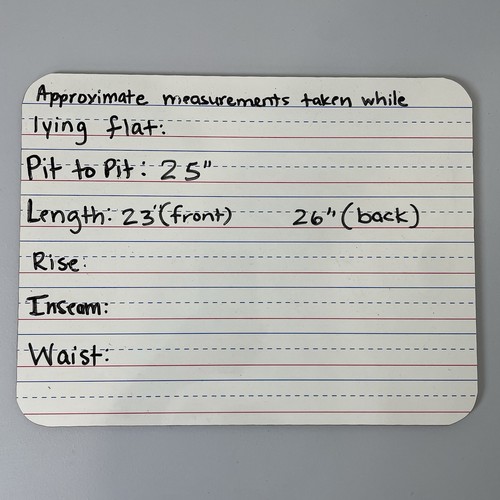 Approximate measurements taken while
lying flat:
Pit to Pit: 25"
Length: 23"(front) 26"(back)
Rise:
Inseam:
Waist: